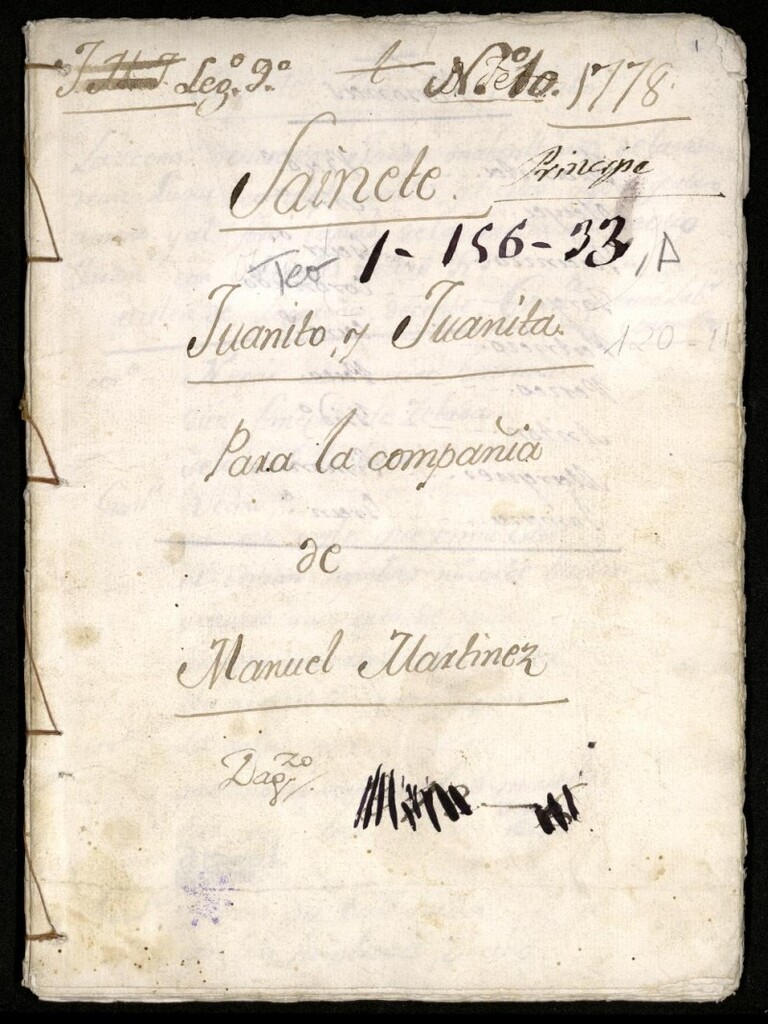 Leg.º 9.º N.º 10. 1778.
Sainete. Principe
Teo 1-156-33
Juanito, y Juanita.
Para la compañia
de
Manuel Martinez